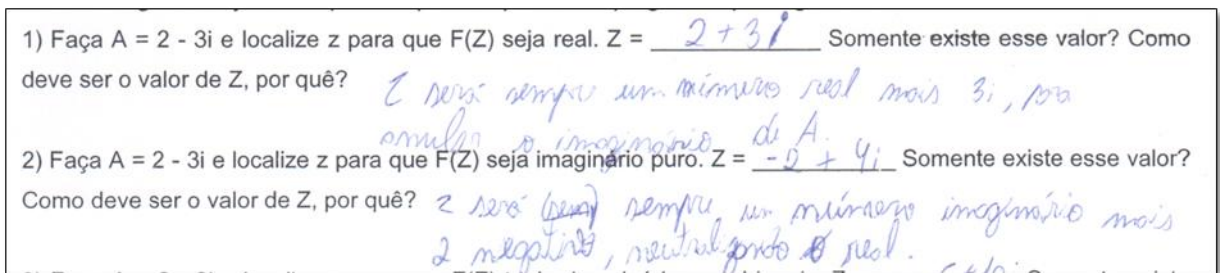 1) Faça A = 2 - 3i e localize z para que F(Z) seja real. Z = 2 + 3i Somente existe esse valor? Como
deve ser o valor de Z, por quê? Z será sempre um número real mais 3i, pra
anular o imaginário de A.
2) Faça A = 2 - 3i e localize z para que F(Z) seja imaginário puro. Z = -2 + 4i Somente existe esse valor?
Como deve ser o valor de Z, por quê? z será sempre um número imaginário mais
2 negativo, neutralizando o real.